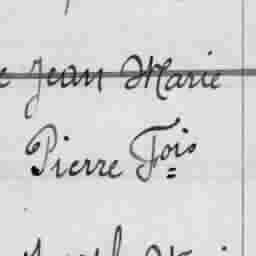 e Jean Marie
Pierre Fois